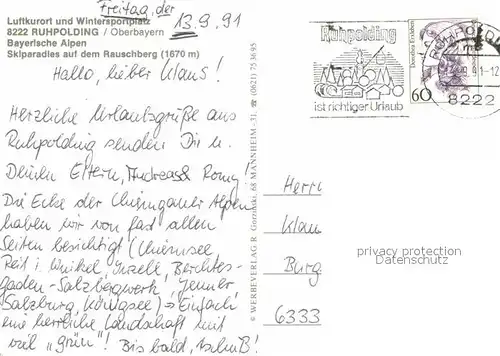 Freitag, der
13.9.91
Luftkurort und Wintersportplatz
8222 RUHPOLDING / Oberbayern
Bayerische Alpen
Skiparadies auf dem Rauschberg (1670 m)
Hallo, lieber Klaus!
Herzliche Urlaubsgrüße aus
Ruhpolding senden Dir u.
Deinen Eltern, Andreas & Romy!
Die Ecke der Chiemgauer Alpen
haben wir von fast allen
Seiten besichtigt (Chiemsee
Reit i. Winkel, Inzell, Berchtes-
gaden - Salzbergwerk, Jenner
Salzburg, Königsee) → Einfach
eine herrliche Landschaft mit
viel "grün"! Bis bald, tschüß!
© WERBEVERLAG R. 68 MANNHEIM - 31, ☎ (0621) 75 36 95
Ruhpolding
ist richtiger Urlaub
Deutsche Bundespost
60
RUHPOLDING
8222
Herrn
Klau
Burg
6333
privacy protection
Datenschutz